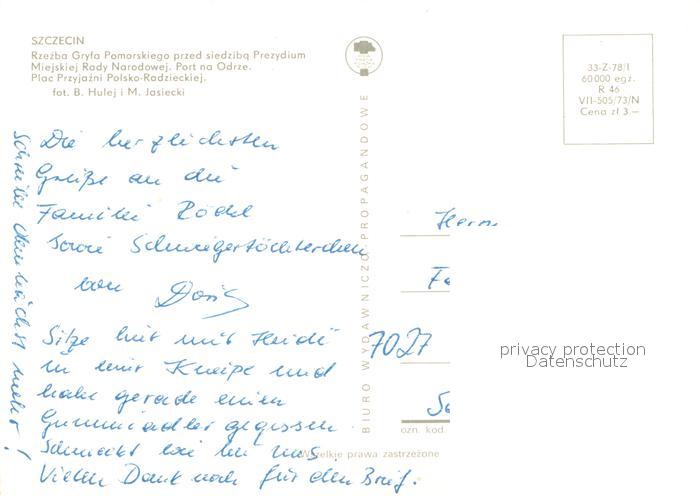 SZCZECIN
Rzeźba Gryfa Pomorskiego przed siedzibą Prezydium
Miejskiej Rady Narodowej. Port na Odrze.
Plac Przyjaźni Polsko-Radzieckiej.
fot. B. Hulej i M. Jasiecki
33-Z-78/I
60 000 egz.
R 46
VII-505/73/N
Cena zł 3.—
BIURO WYDAWNICZO-PROPAGANDOWE
Die herzlichsten
Grüße an die
Familie Rödel
sowie Schwiegertöchterchen
von Doris
Sitze hier mit Heidi
in einer Kneipe und
habe gerade einen
Gummiadler gegessen.
Schmeckt wie bei uns.
Vielen Dank noch für den Brief.
Schreibe demnächst mehr!
Herrn
Fa
7027
privacy protection
Datenschutz
ozn. kod
Wszelkie prawa zastrzeżone